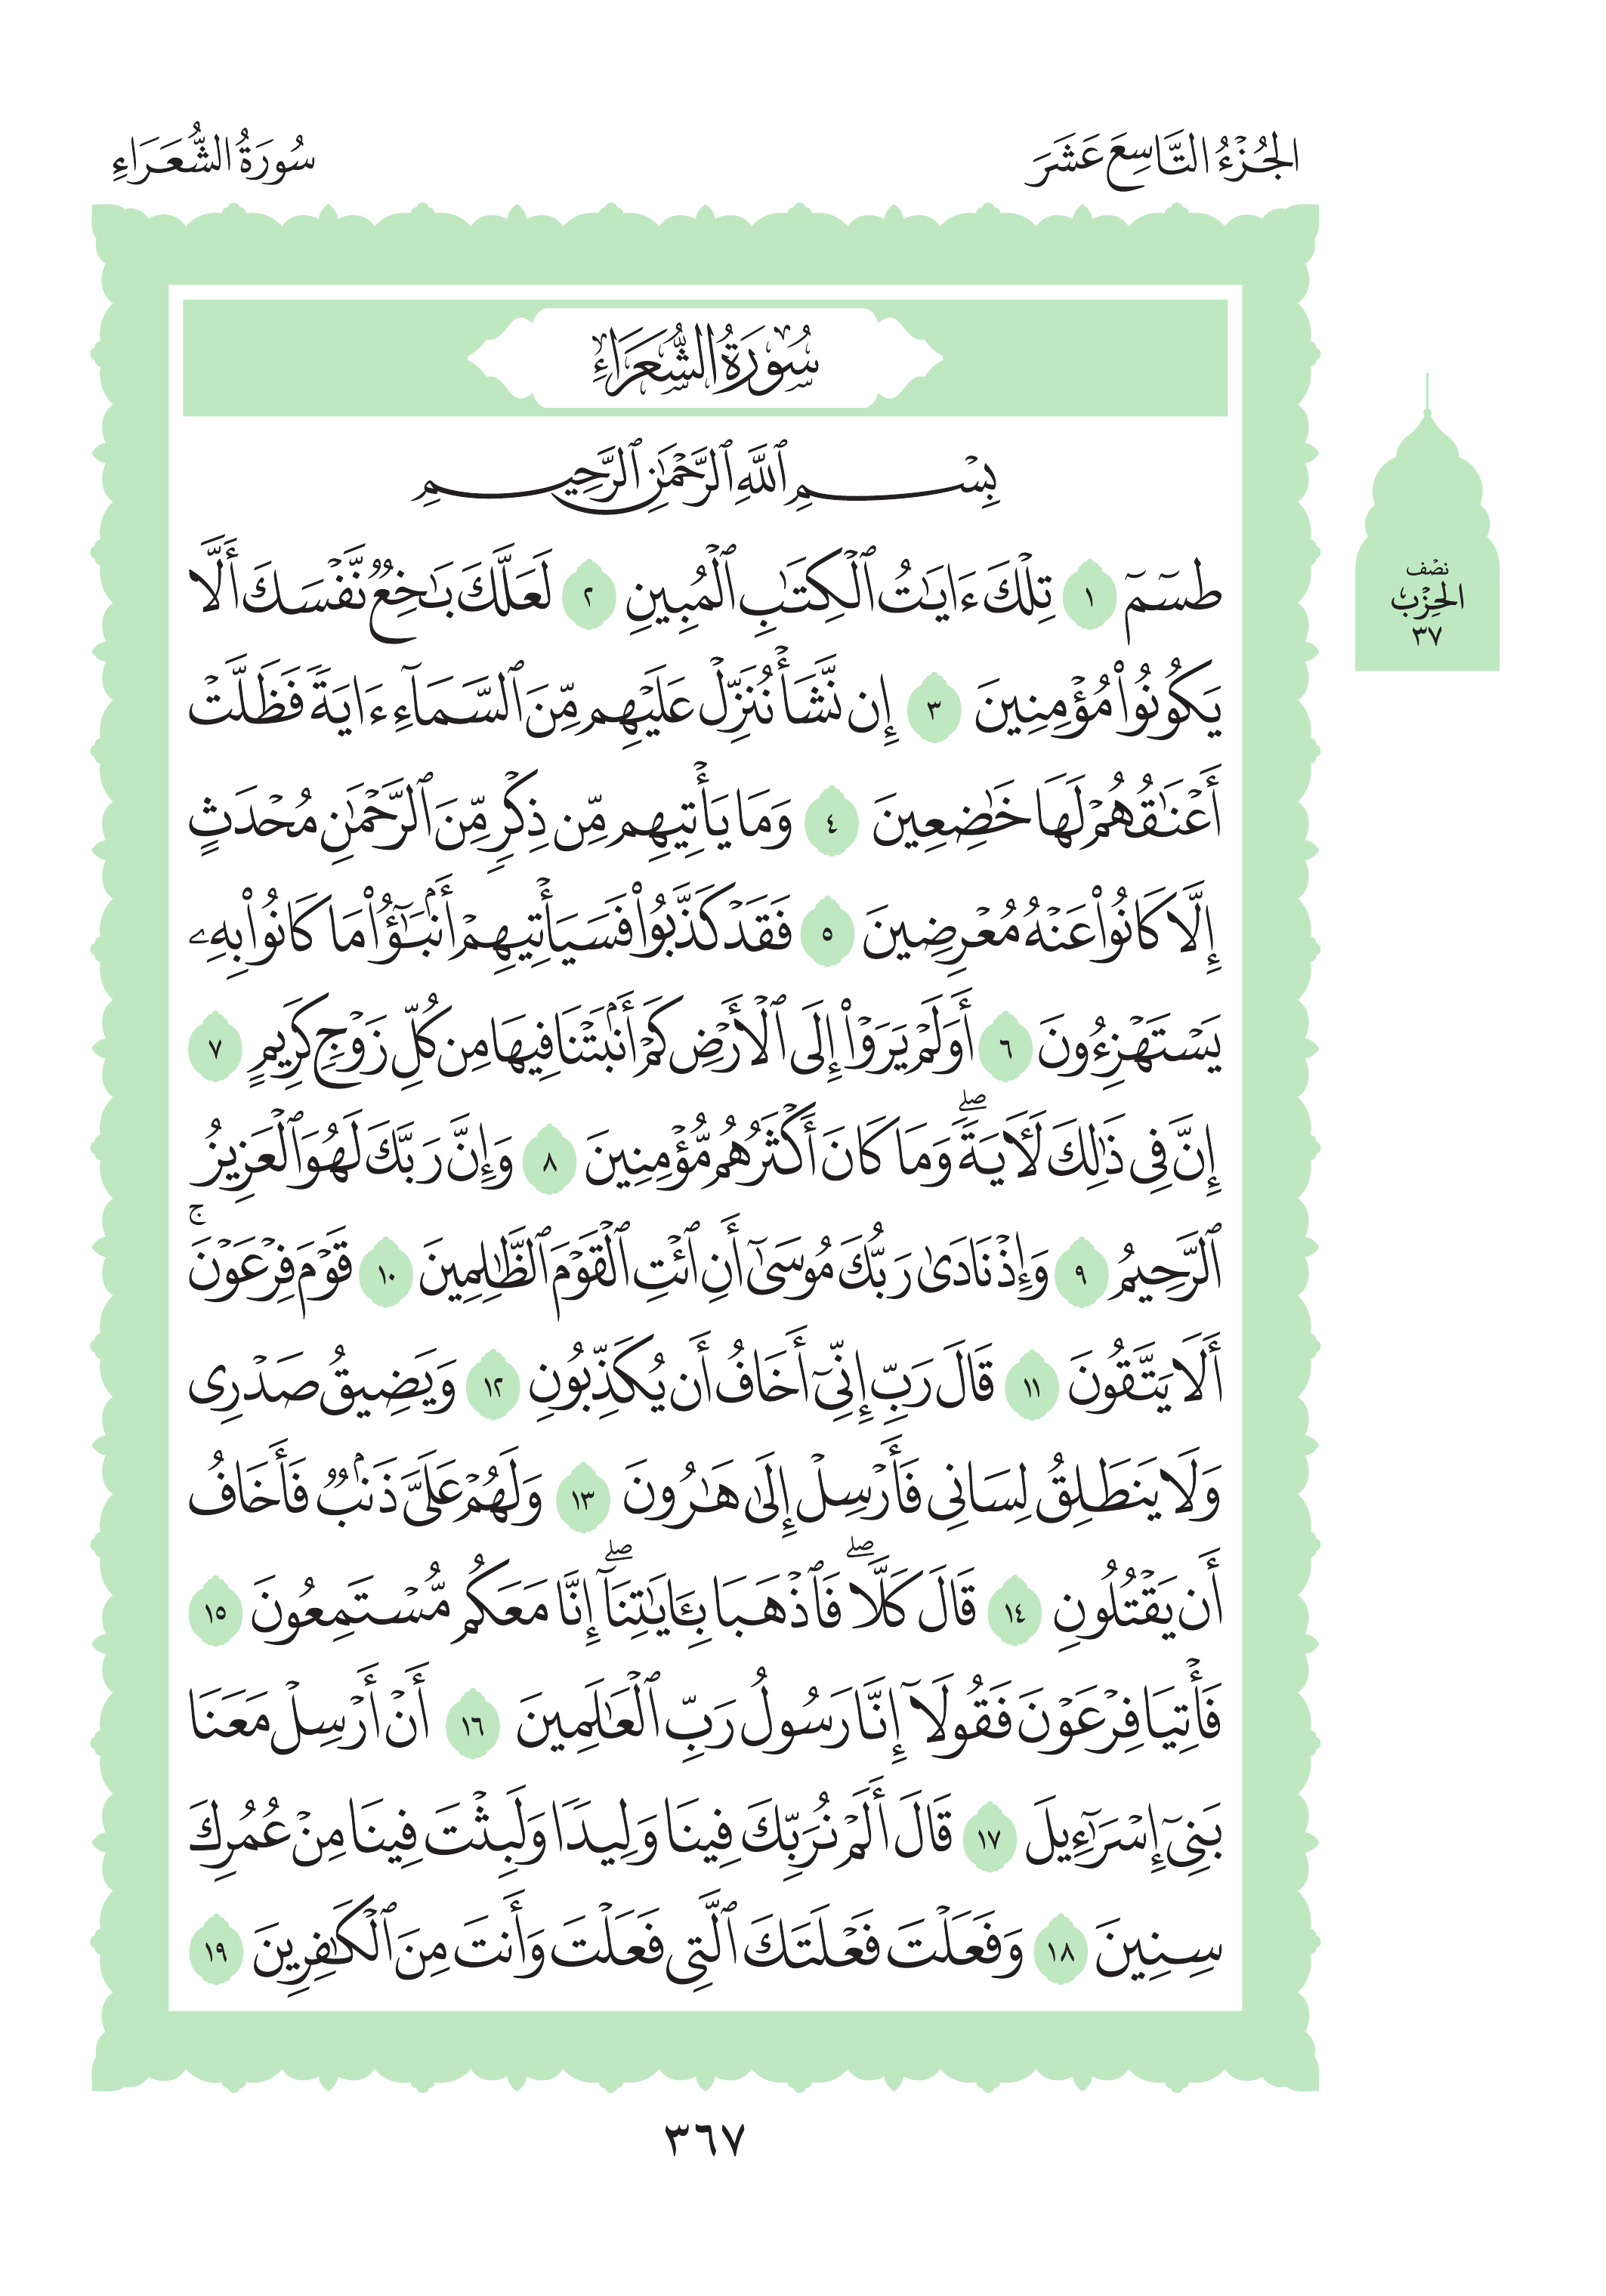 الجُزْءُ التَّاسِعَ عَشَرَ
سُورَةُ الشُّعَرَاءِ
سُورَةُ الشُّعَرَاءِ
نصف
الحِزْب
٣٧
بِسْمِ ٱللَّهِ ٱلرَّحْمَٰنِ ٱلرَّحِيمِ
طسٓمٓ ١ تِلْكَ ءَايَٰتُ ٱلْكِتَٰبِ ٱلْمُبِينِ ٢ لَعَلَّكَ بَٰخِعٌ نَّفْسَكَ أَلَّا
يَكُونُوا۟ مُؤْمِنِينَ ٣ إِن نَّشَأْ نُنَزِّلْ عَلَيْهِم مِّنَ ٱلسَّمَآءِ ءَايَةً فَظَلَّتْ
أَعْنَٰقُهُمْ لَهَا خَٰضِعِينَ ٤ وَمَا يَأْتِيهِم مِّن ذِكْرٍ مِّنَ ٱلرَّحْمَٰنِ مُحْدَثٍ
إِلَّا كَانُوا۟ عَنْهُ مُعْرِضِينَ ٥ فَقَدْ كَذَّبُوا۟ فَسَيَأْتِيهِمْ أَنۢبَٰٓؤُا۟ مَا كَانُوا۟ بِهِۦ
يَسْتَهْزِءُونَ ٦ أَوَلَمْ يَرَوْا۟ إِلَى ٱلْأَرْضِ كَمْ أَنۢبَتْنَا فِيهَا مِن كُلِّ زَوْجٍ كَرِيمٍ ٧
إِنَّ فِى ذَٰلِكَ لَـَٔايَةً ۖ وَمَا كَانَ أَكْثَرُهُم مُّؤْمِنِينَ ٨ وَإِنَّ رَبَّكَ لَهُوَ ٱلْعَزِيزُ
ٱلرَّحِيمُ ٩ وَإِذْ نَادَىٰ رَبُّكَ مُوسَىٰٓ أَنِ ٱئْتِ ٱلْقَوْمَ ٱلظَّٰلِمِينَ ١٠ قَوْمَ فِرْعَوْنَ ۚ
أَلَا يَتَّقُونَ ١١ قَالَ رَبِّ إِنِّىٓ أَخَافُ أَن يُكَذِّبُونِ ١٢ وَيَضِيقُ صَدْرِى
وَلَا يَنطَلِقُ لِسَانِى فَأَرْسِلْ إِلَىٰ هَٰرُونَ ١٣ وَلَهُمْ عَلَىَّ ذَنۢبٌ فَأَخَافُ
أَن يَقْتُلُونِ ١٤ قَالَ كَلَّا ۖ فَٱذْهَبَا بِـَٔايَٰتِنَآ ۖ إِنَّا مَعَكُم مُّسْتَمِعُونَ ١٥
فَأْتِيَا فِرْعَوْنَ فَقُولَآ إِنَّا رَسُولُ رَبِّ ٱلْعَٰلَمِينَ ١٦ أَنْ أَرْسِلْ مَعَنَا
بَنِىٓ إِسْرَٰٓءِيلَ ١٧ قَالَ أَلَمْ نُرَبِّكَ فِينَا وَلِيدًا وَلَبِثْتَ فِينَا مِنْ عُمُرِكَ
سِنِينَ ١٨ وَفَعَلْتَ فَعْلَتَكَ ٱلَّتِى فَعَلْتَ وَأَنتَ مِنَ ٱلْكَٰفِرِينَ ١٩
٣٦٧